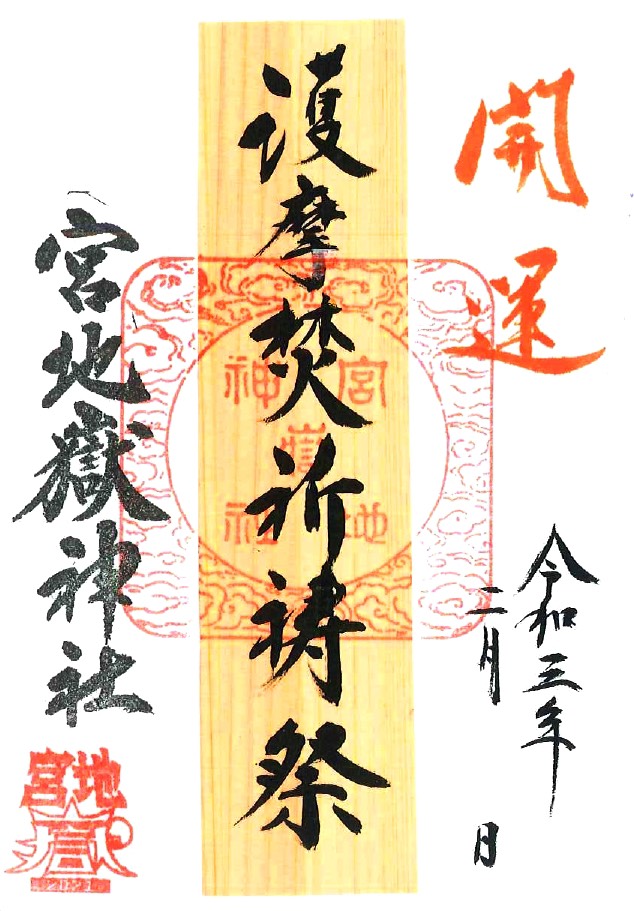 開運
令和三年
二月 日
護摩焚祈祷祭
宮地嶽神社
宮地嶽神社
宮地嶽